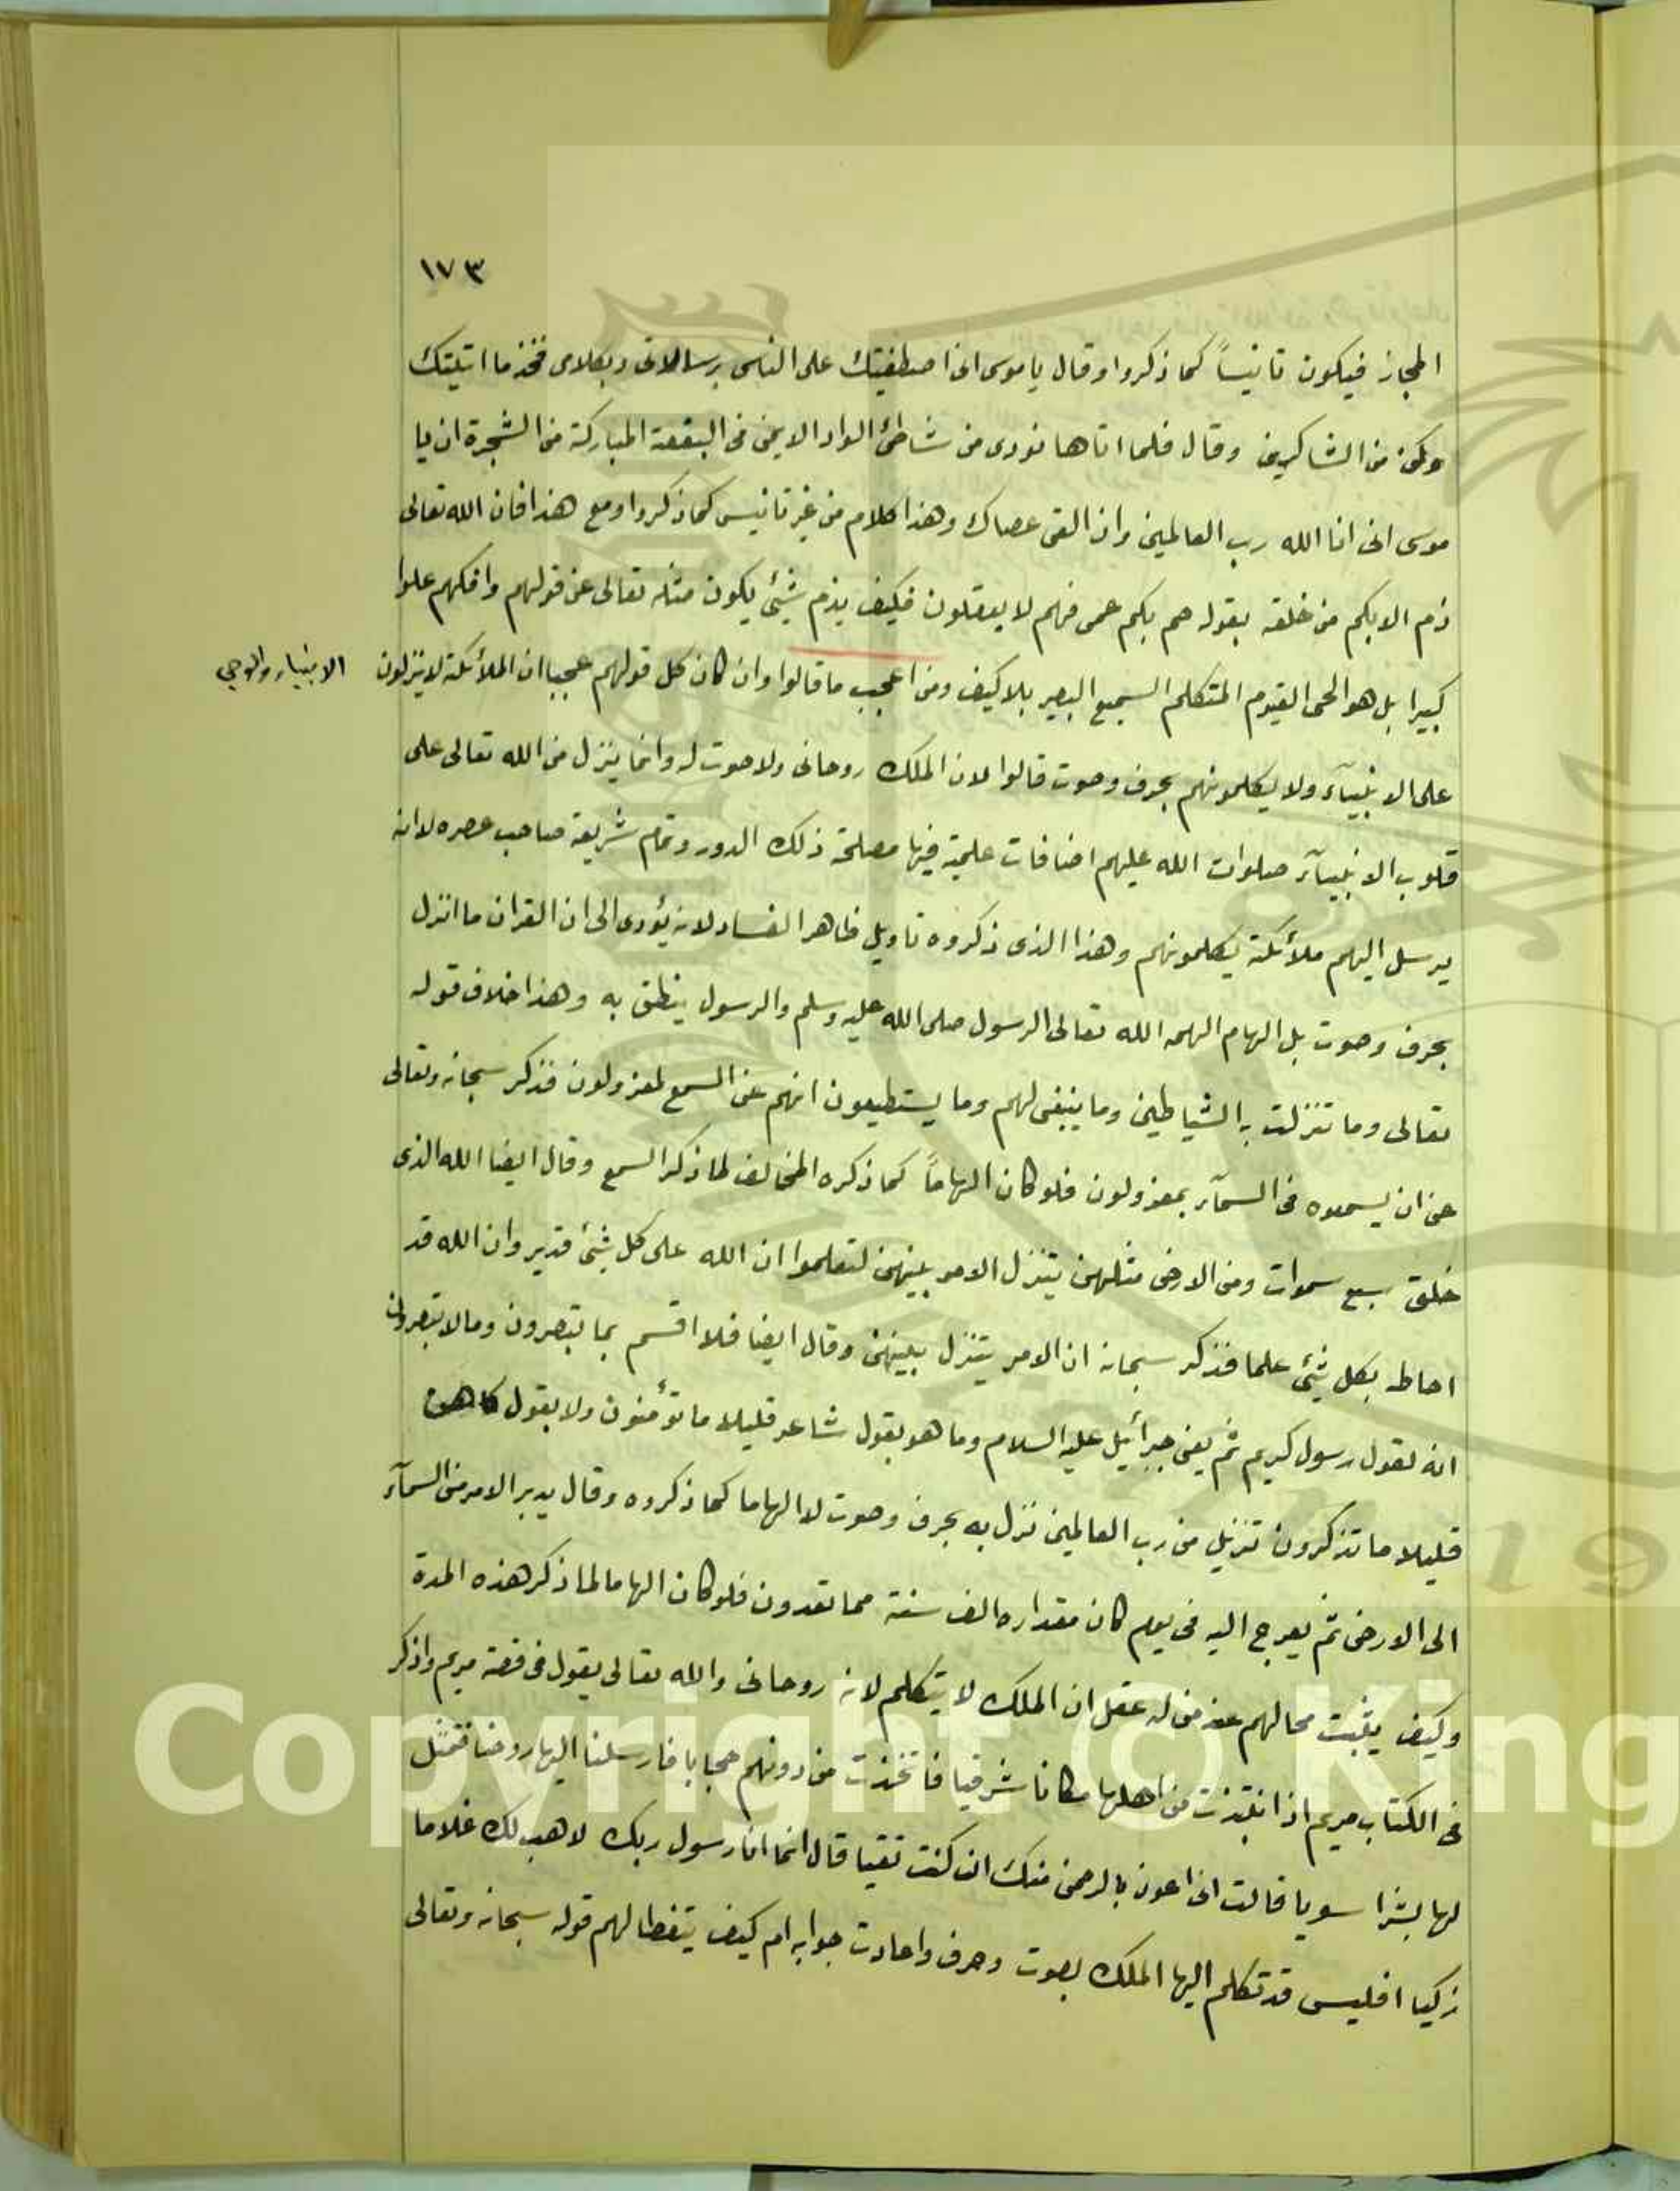 ١٧٣
المجاز فيكون تانيساً كما ذكروا وقال يا موسى انى اصطفيتك على الناس برسالاتى وبكلامى فخذ ما اتيتك
وكن من الشاكرين وقال فلما اتاها نودى من شاطئ الواد الايمن فى البقعة المباركة من الشجرة ان يا
موسى انى انا الله رب العالمين وان الق عصاك وهذا كلام من غير تانيس كما ذكروا ومع هذا فان الله تعالى
ذم الابكم من خلقه بقوله صم بكم عمى فهم لا يعقلون فكيف يذم بشئ يكون مثله تعالى عن قولهم وافكهم علوا
كبيرا بل هو الحى القيوم المتكلم السميع البصير بلا كيف ومن اعجب ما قالوا وان كان كل قولهم عجيبا ان الملائكة لا ينزلون
الانبياء والوحي
على الانبيآء ولا يكلمونهم بحرف وصوت قالوا لان الملك روحانى ولا صوت له وانما ينزل من الله تعالى على
قلوب الانبيآء صلوات الله عليهم اضافات علمية فيها مصلحة ذلك الدور وتمام شريعة صاحب عصره لا انه
يرسل اليهم ملائكة يكلمونهم وهذا الذى ذكروه تاويل ظاهر الفساد لانه يؤدى الى ان القران ما انزل
بحرف وصوت بل الهام الهمه الله تعالى الرسول صلى الله عليه وسلم والرسول ينطق به وهذا خلاف قوله
تعالى وما تنزلت به الشياطين وما ينبغى لهم وما يستطيعون انهم عن السمع لمعزولون فذكر سبحانه وتعالى
عن ان يسمعوه فى السمآء بمعزولون فلو كان الهاماً كما ذكره المخالف لما ذكر السمع وقال ايضا الله الذى
خلق سبع سموات ومن الارض مثلهن يتنزل الامر بينهن لتعلموا ان الله على كل شئ قدير وان الله قد
احاط بكل شئ علما فذكر سبحانه ان الامر يتنزل بينهن وقال ايضا فلا اقسم بما تبصرون وما لا تبصرون
انه لقول رسول كريم ثم يعنى جبرائيل عليه السلام وما هو بقول شاعر قليلا ما تؤمنون ولا بقول كاهن
قليلا ما تذكرون تنزيل من رب العالمين نزل به بحرف وصوت لا الهاما كما ذكروه وقال يدبر الامر من السمآء
الى الارض ثم يعرج اليه فى يوم كان مقداره الف سنة مما تعدون فلو كان الهاما لما ذكر هذه المدة
وكيف يثبت محالهم عند من له عقل ان الملك لا يتكلم لانه روحانى والله تعالى يقول فى قصة مريم واذكر
فى الكتاب مريم اذ انتبذت من اهلها مكانا شرقيا فاتخذت من دونهم حجابا فارسلنا اليها روحنا فتمثل
لها بشرا سويا قالت انى اعوذ بالرحمن منك ان كنت تقيا قال انما انا رسول ربك لاهب لك غلاما
زكيا افليس قد تكلم اليها الملك بصوت وحرف واعادت جوابه ام كيف يتغطا لهم قوله سبحانه وتعالى
Copyright © King
19